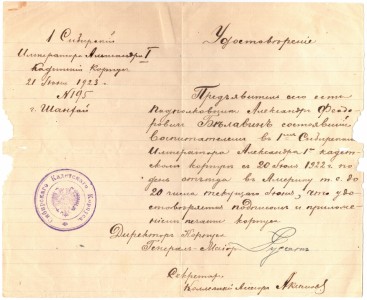 1 Сибирскій
Императора Александра I
Кадетскій Корпусъ
21 Іюня 1923.
N 195
г. Шанхай
Удостовѣреніе
Предъявитель сего есть
подполковникъ Александръ Федо-
ровичъ состоявшій
воспитателемъ въ 1 Сибирскомъ
Императора Александра 1го кадет-
скомъ корпусѣ съ 20 Іюня 1922 г. по
день отъѣзда въ Америку т. е. до
20 числа текущаго Іюня, что удо-
стовѣряется подписью и приложе-
ніемъ печати корпуса
Директоръ Корпуса
Генералъ-Маіоръ
Секретарь,